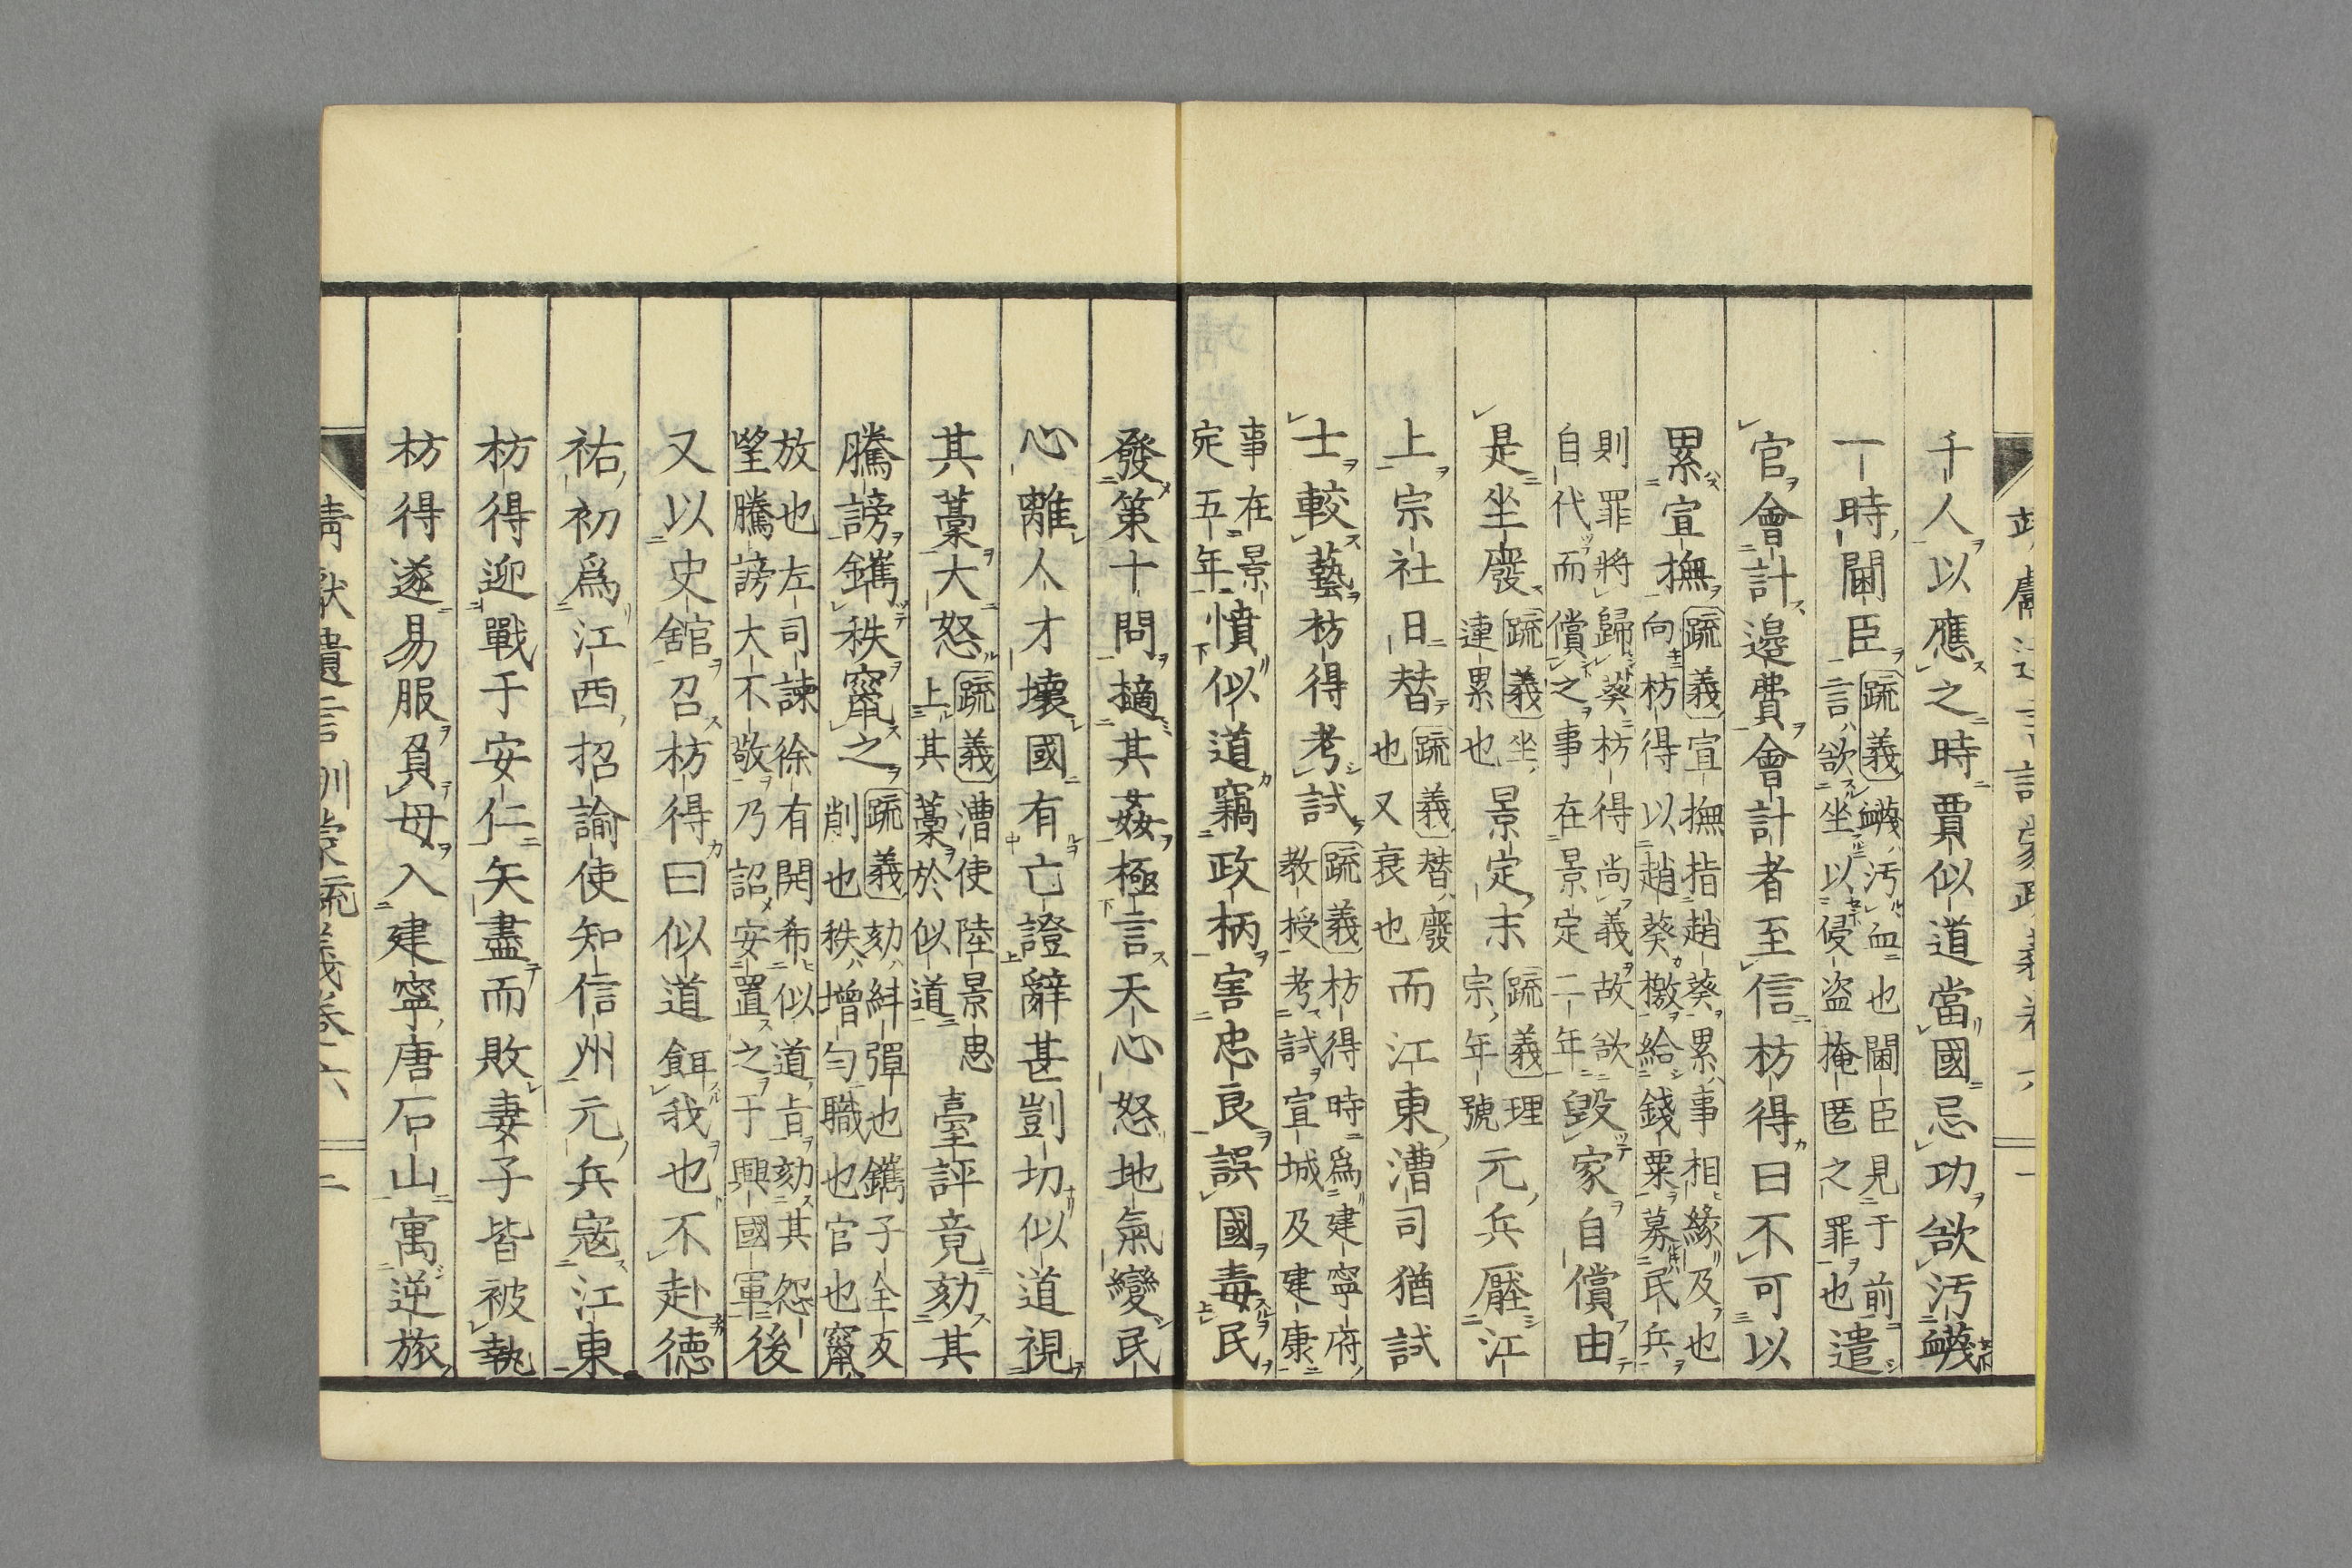 千人以應之時賈似道當國忌功欲汚衊
一時閫臣疏義衊汚血也閫臣見于前
言欲坐以侵盗掩匿之罪也遣
官會計邊費會計者至信枋得曰不可以
累宣撫疏義宣撫指趙葵累事相緣及也
向枋得以趙葵檄給錢粟募民兵
則罪將歸葵枋得尚義故欲
自代而償之事在景定二年毀家自償由
是坐廢疏義坐
連累也景定末疏義理
宗年號元兵壓江
上宗社日替疏義替廢
也又衰也而江東漕司猶試
士較藝枋得考試疏義枋得時爲建寧府
教授考試宣城及建康
事在景
定五年憤似道竊政柄害忠良誤國毒民
發策十問擿其姦極言天心怒地氣變民
心離人才壞國有亡證辭甚剴切似道視
其藁大怒疏義漕使陸景思
上其藁於似道臺評竟劾其
騰謗鐫秩竄之疏義劾糾彈也鐫子全反
削也秩增匀職也官也竄
放也左司諫徐有開希似道旨劾其怨
望騰謗大不敬乃詔安置之于興國軍後
又以史舘召枋得曰似道餌我也不赴德
祐初爲江西招諭使知信州元兵寇江東
枋得迎戰于安仁矢盡而敗妻子皆被執
枋得遂易服負母入建寧唐石山寓逆旅
靖獻遺言訓蒙疏義卷六 二